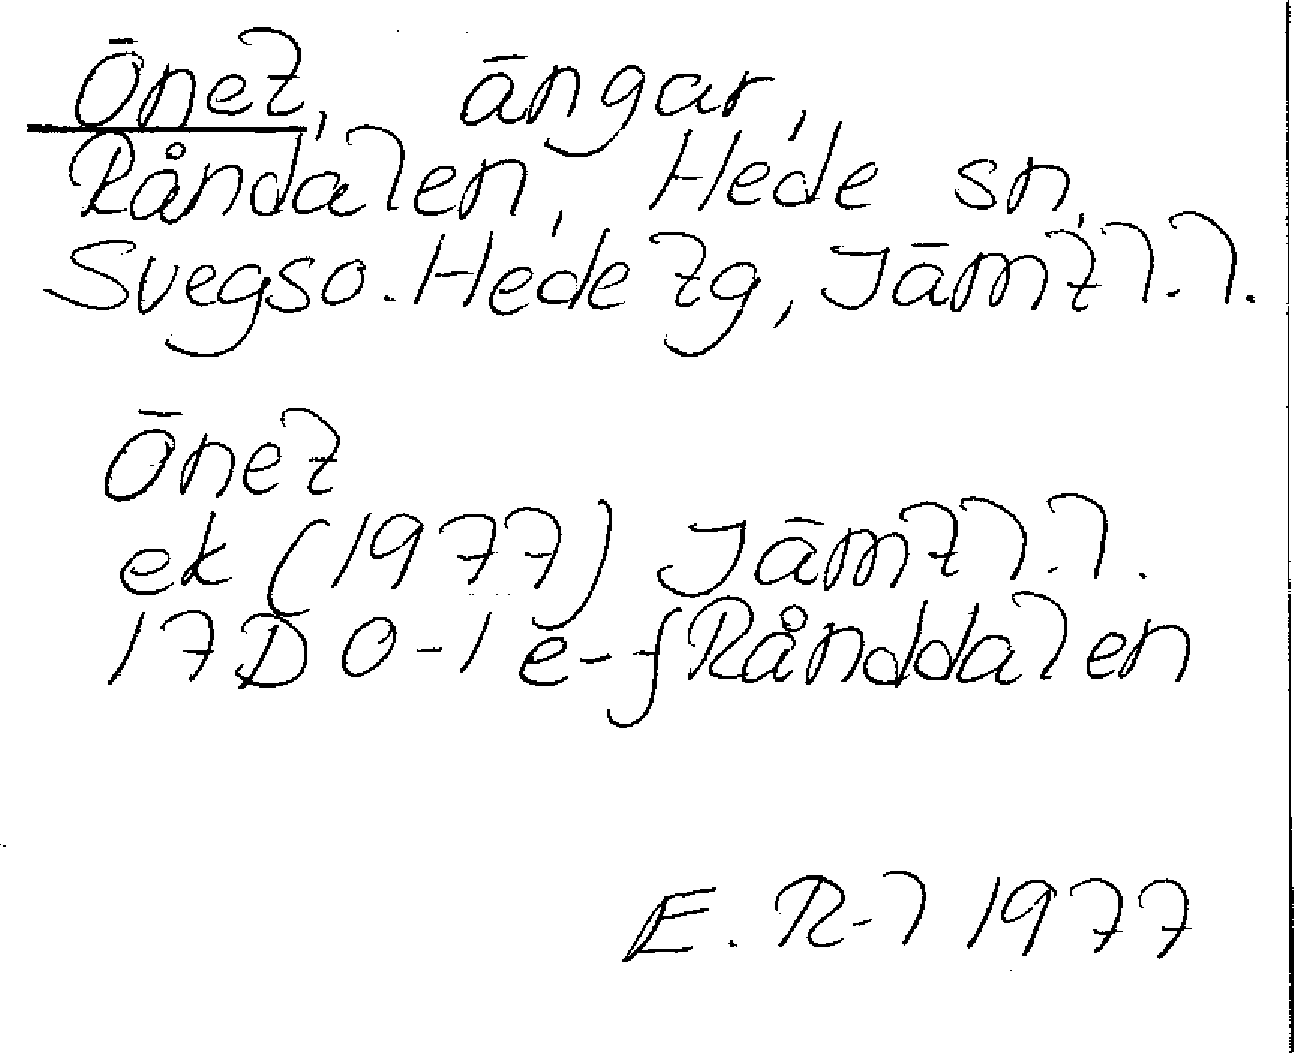 Önet, ängar,
Råndalen, Hede sn,
Svegs o. Hede tg, Jämtl. l.
Önet
ek (1977) Jämtl. l.
17D 0-1 e-f Rånddalen
E. R-l 1977